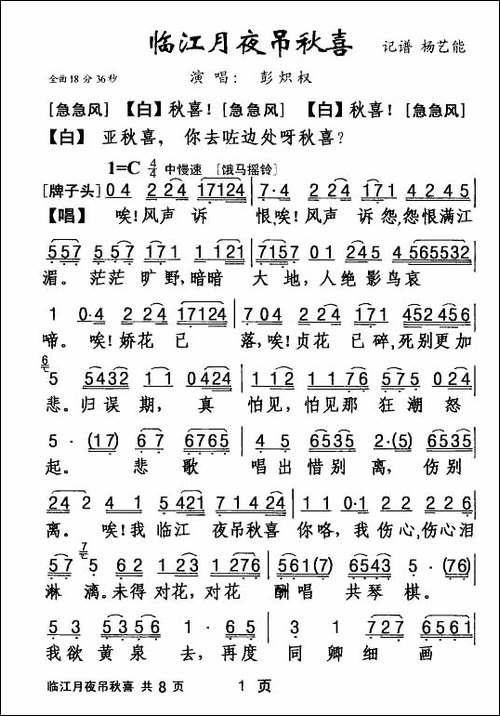 临江月夜吊秋喜 记谱 杨艺能
全曲18分36秒 演唱: 彭炽权
[急急风] 【白】秋喜! [急急风] 【白】秋喜! [急急风]
【白】 亚秋喜, 你去咗边处呀秋喜?
1=C 4/4 中慢速 [饿马摇铃]
[牌子头] 0 4 2 24 17124 | 7·4 0 2 24 171 4 2 4 5
【唱】 唉!风声 诉 恨,唉!风声 诉 怨,怨恨满江
557 557 171 1 121 | 7157 01 245 4 565532
湄。茫茫 旷野,暗暗 大 地,人绝 影鸟哀
1 0·4 2 24 17124 | 1 0·4 2 24 171 452456
啼。唉!娇花 已 落,唉!贞花 已 碎,死别更加
5 5432 1 1 0424 | 1 1 2 1 1 76 575 0 24
悲。归误 期, 真 怕见,怕见那 狂 潮 怒
5·(17) 6 7 6765 | 4 5 6535 2·(5) 6535
起。 悲 歌 唱出 惜别 离, 伤别
24 2 4 1 5421 7 1 4 24 | 1 1 0·1 2 2 2 6
离。 唉!我 临江 夜吊秋喜 你咯, 我 伤心,伤心泪
5 7 5 6 2 1 23 1276 | 561(7) 6543 5·(76)
淋 漓。未得 对花,对花 酬唱 共琴 棋。
5 3 5356 1·6 5 | 3 5 7276 5617 6535
我欲 黄泉 去,再度 同 卿 细 画
临江月夜吊秋喜 共 8 页 1 页